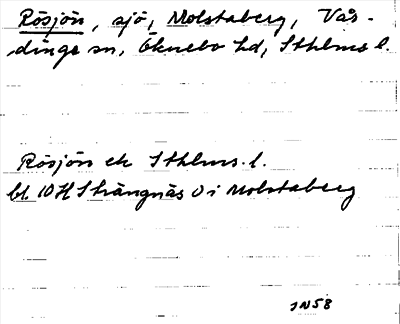 Rösjön, sjö, Molstaberg, Vår-
dinge sn, Öknebo hd, Sthlms l.
Rösjön ek Sthlms. l.
bl. 10H Strängnäs O i Molstaberg
JN58